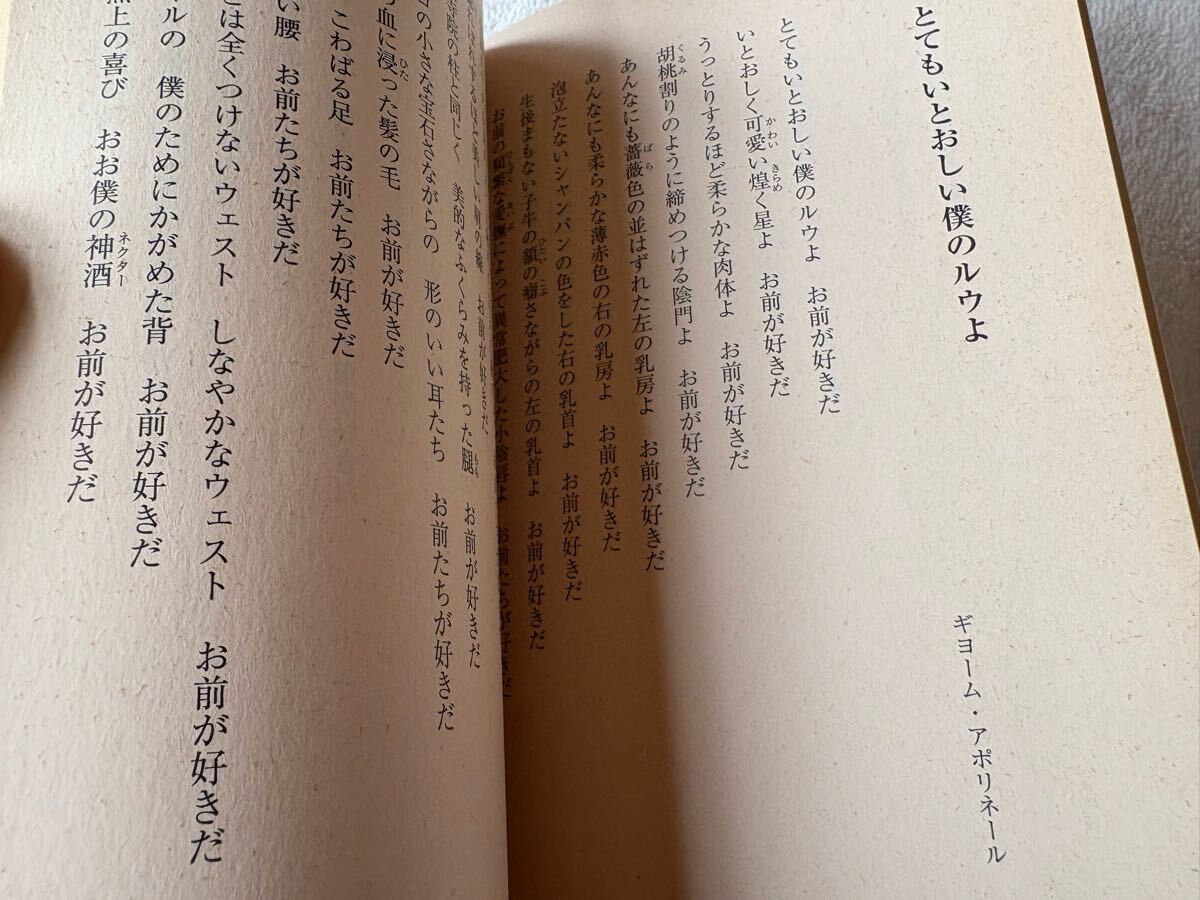 とてもいとおしい僕のルウよ
ギヨーム・アポリネール
とてもいとおしい僕のルウよ　お前が好きだ
いとおしく可愛い煌く星よ　お前が好きだ
うっとりするほど柔らかな肉体よ　お前が好きだ
胡桃割りのように締めつける陰門よ　お前が好きだ
あんなにも薔薇色の並はずれた左の乳房よ　お前が好きだ
あんなにも柔らかな薄赤色の右の乳房よ　お前が好きだ
泡立たないシャンパンの色をした右の乳首よ　お前が好きだ
生後まもない子牛の額の瘤さながらの左の乳首よ　お前が好きだ
お前の頻繁な愛撫によって異常肥大した小陰唇よ　お前たちが好きだ
お前が好きだ
の柱と同じく　美的なふくらみを持った腿　お前が好きだ
の小さな宝石さながらの　形のいい耳たち　お前たちが好きだ
血に浸った髪の毛　お前が好きだ
こわばる足　お前たちが好きだ
い腰　お前たちが好きだ
とは全くつけないウェスト　しなやかなウェスト　お前が好きだ
ルの　僕のためにかがめた背　お前が好きだ
上の喜び　おお僕の神酒　お前が好きだ